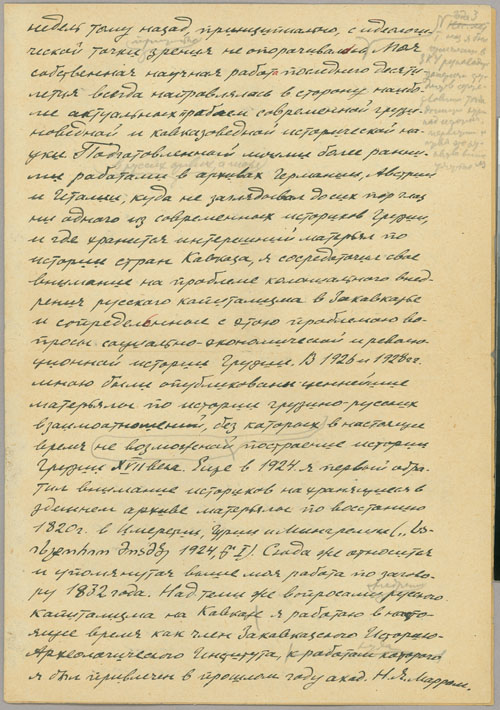 недель тому назад, принципиально, с идеологи-
ческой точки зрения не опорачивали. Моя
собственная научная работа последнего десяти-
летия всегда направлялась в сторону наибо-
ле актуальных проблем современной грузи-
новедной и кавказоведной исторической на-
уки. Подготовленный моими более ранни-
ми работами в архивах Германии, Австрии
и Италии, куда не заглядывал до сих пор глаз
ни одного из современных историков Грузии,
и где хранится интересный матерьял по
истории стран Кавказа, я сосредоточил свое
внимание на проблеме колониального внед-
рения русского капитализма в Закавказье
и сопределенные с этою проблемою во-
просы социально-экономической и револю-
ционной истории Грузии. В 1926 и 1928 гг.
мною были опубликованы ценнейшие
матерьялы по истории грузино-русских
взаимоотношений, без которых в настоящее
время не возможной построение истории
Грузии XVII века. Еще в 1924 я первой обра-
тил внимание историков на хранящиеся в
здешнем архиве матерьялы по восстанию
1820 г. в Имеретии, Гурии и Мингрелии („სა-
ისტორიო მოამბე 1924, წ. I). Сюда же относится
и упомянутая выше моя работа по загово-
ру 1832 года. Над теми же вопросами русского
капитализма на Кавказе я работаю в насто-
ящее время как член Закавказского Историко-
Археологического Института, к работам которого
я был привлечен в прошлом году акад. Н. Я. Марром.